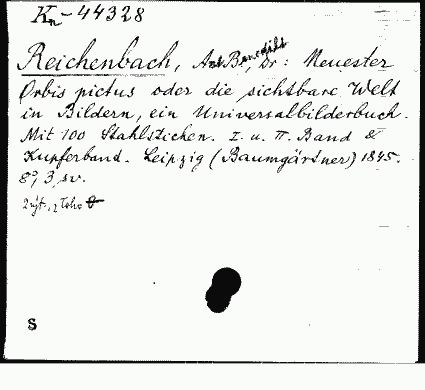 Kn-44328
Reichenbach, Ant. Benedikt, Dr: Neuester
Orbis pictus oder die sichtbare Welt
in Bildern, ein Universalbilderbuch.
Mit 100 Stahlstichen. I. u. II. Band &
Kupferband. Leipzig (Baumgärtner) 1845.
8°, 3 sv.
S